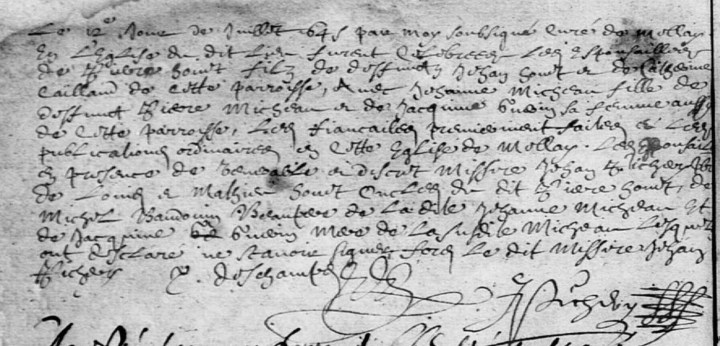 Le 12e Jour de Juillet 645 par moy soubsigné Curé de Mollay
En L'Eglise du dit Lieu furent Celebrees Les Espousailles
de Pierre hout filz de deffunctz Jehan hout et de Catherine
Caillaud de Cette parroisse, Avec Jehanne Micheau fille de
deffunct Pierre Micheau et de Jacquine sa femme aussy
de Cette parroisse, Les fiancailles premierement faites et Les
publications ordinaires en Cette Eglise de Mollay. Les Espousailles
En presence de Venerable et discret Missire Jehan Pichery
de Louis et Mathieu hout Oncles du dit Pierre hout, de
Michel Baudouin Beaupere de Ladite Jehanne Micheau Et
de Jacquine Mere de La susdite Micheau Lesquelz
ont desclaré ne scavoir signer fors Le dit Missire Jehan
Pichery P. deschamps
J Pichery